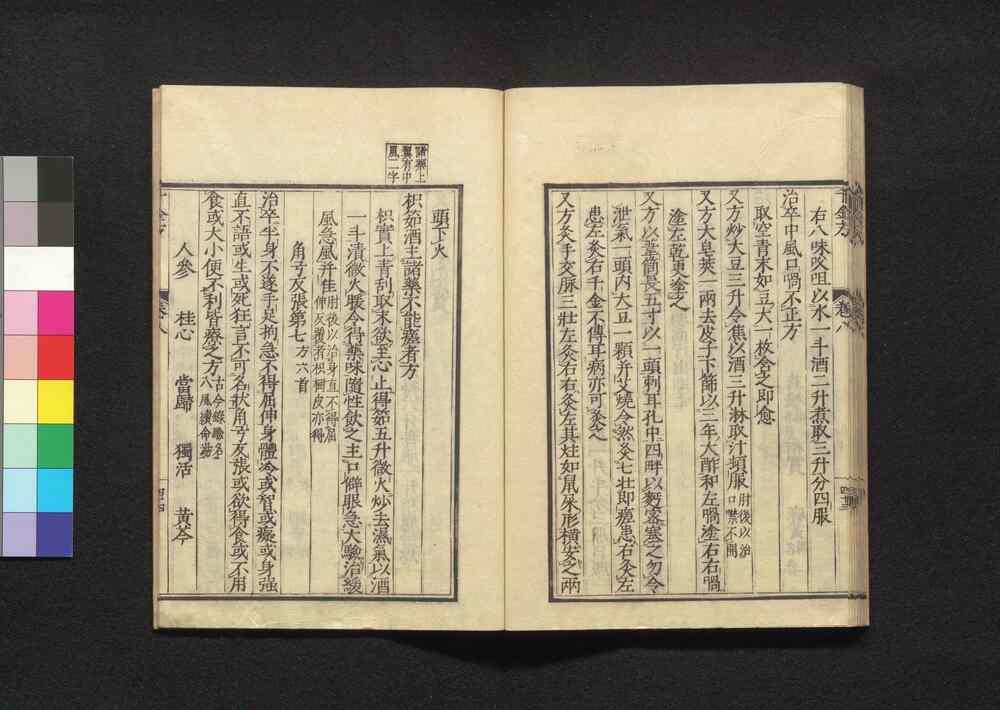 千金方 卷八 四十三
右八味㕮咀以水一斗酒二升煮取三升分四服
治卒中風口喎不正方
取空青末如豆大一枚含之即愈
又方炒大豆三升令焦以酒三升淋取汁頓服肘後以治口噤不開
又方大皂莢一兩去皮子下篩以三年大酢和左喎塗右右喎
塗左乾更塗之
又方以葦筒長五寸以一頭刺耳孔中四畔以麪密塞之勿令
泄氣一頭内大豆一顆并艾燒令然灸七壯即瘥患右灸左
患左灸右千金不傳耳病亦可灸之
又方灸手交脉三壯左灸右右灸左其炷如鼠屎形橫安之兩
頭下火
枳茹酒主諸藥不能瘥者方
諸藥上
翼有中
風二字
枳實上青刮取末欲至心止得茹五升微火炒去濕氣以酒
一斗漬微火暖令得藥味隨性飲之主口僻眼急大驗治緩
風急風并佳肘後以治身直不得屈伸反覆者枳樹皮亦得
角弓反張第七方六首
治卒半身不遂手足拘急不得屈伸身體冷或智或癡或身强
直不語或生或死狂言不可名狀角弓反張或欲得食或不用
食或大小便不利皆療之方古今錄驗名八風續命湯
人參 桂心 當歸 獨活 黄芩
千金方 卷八 四十四